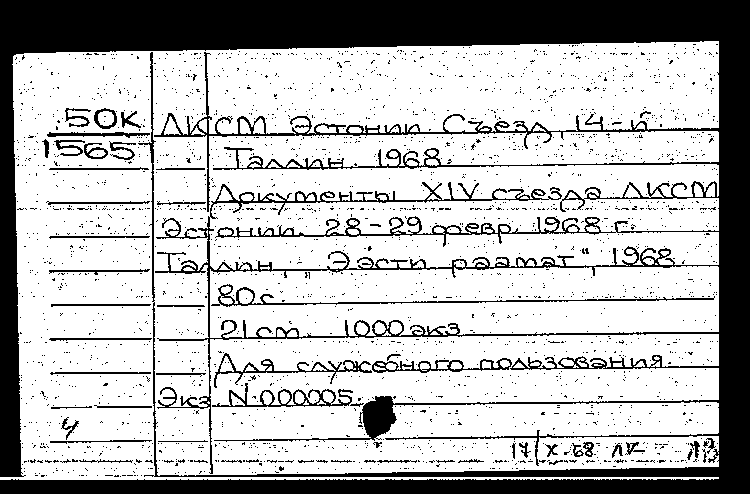 50К
1565
ЛКСМ Эстонии. Съезд, 14-й.
Таллин. 1968.
Документы XIV съезда ЛКСМ
Эстонии. 28-29 февр. 1968 г.
Таллин, „Ээсти раамат", 1968.
80 с.
21 см. 1000 экз.
Для служебного пользования.
Экз. N.000005.
4
17/X-68